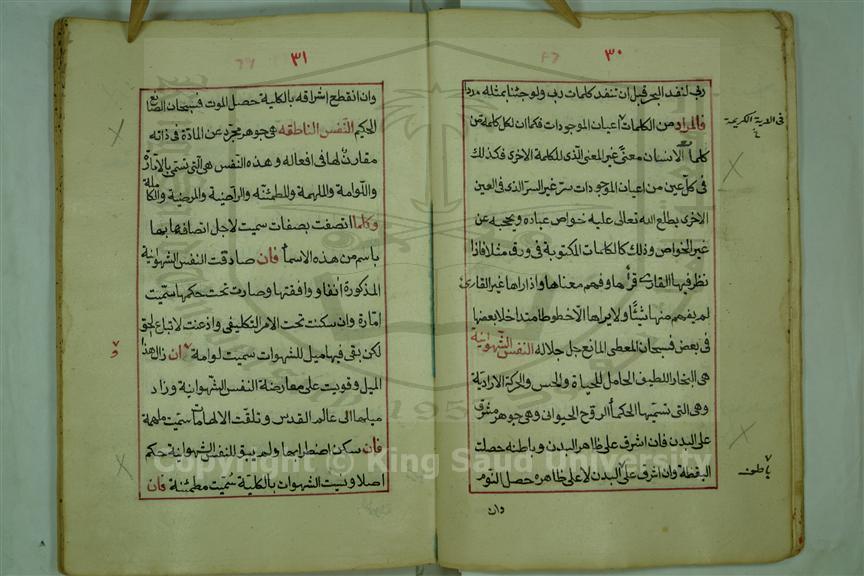 ٣٠
ربي لنفد البحر قبل ان تنفد كلمات ربي ولو جئنا بمثله مددا
فالمراد من الكلمات اعيان الموجودات فكما ان لكل كلمة من
كلمات الانسان معنى غير المعنى الذي للكلمة الاخرى فكذلك
في كل عين من اعيان الموجودات سر غير السر الذي في العين
الاخرى يطلع الله تعالى عليه خواص عباده ويحجبه عن
غير الخواص وذلك كالكلمات المكتوبة في ورق مثلا فاذا
نظر فيها القارئ قرأها وفهم معناها واذا راها غير القارئ
لم يفهم منها شيئا ولا يراها الا خطوطا متداخلا بعضها
في بعض فسبحان المعطي المانع جل جلاله النفس الشهوانية
هي البخار اللطيف الحامل للحياة والحس والحركة الارادية
وهي التي تسميها الحكما الروح الحيواني وهي جوهر مشرق
على البدن فان اشرق على ظاهر البدن وباطنه حصلت
اليقظة وان اشرق على البدن لا على ظاهره حصل النوم
وان
في الاية الكريمة
باطن
٣١
وان انقطع اشراقه بالكلية حصل الموت فسبحان الصانع
الحكيم النفس الناطقه هي جوهر مجرد عن المادة في ذاته
مقارن لها في افعاله وهذه النفس هي التي تسمى بالامارة
واللوامة والملهمة والمطمئنه والراضية والمرضية والكاملة
وكلما اتصفت بصفات سميت لاجل اتصافها بها
باسم من هذه الاسما فان صادقت النفس الشهوانية
المذكورة انفا ووافقتها وصارت تحت حكمها سميت
امارة وان سكنت تحت الامر التكليفي واذعنت لاتباع الحق
لكن بقي فيها ميل للشهوات سميت لوامة ان زال هذا
و
الميل وقويت على معارضة النفس الشهوانية وزاد
ميلها الى عالم القدس وتلقت الالهامات سميت ملهمة
فان سكن اضطرابها ولم يبق للنفس الشهوانية حكم
اصلا ونسيت الشهوات بالكلية سميت مطمئنة فان
Copyright © King Saud University